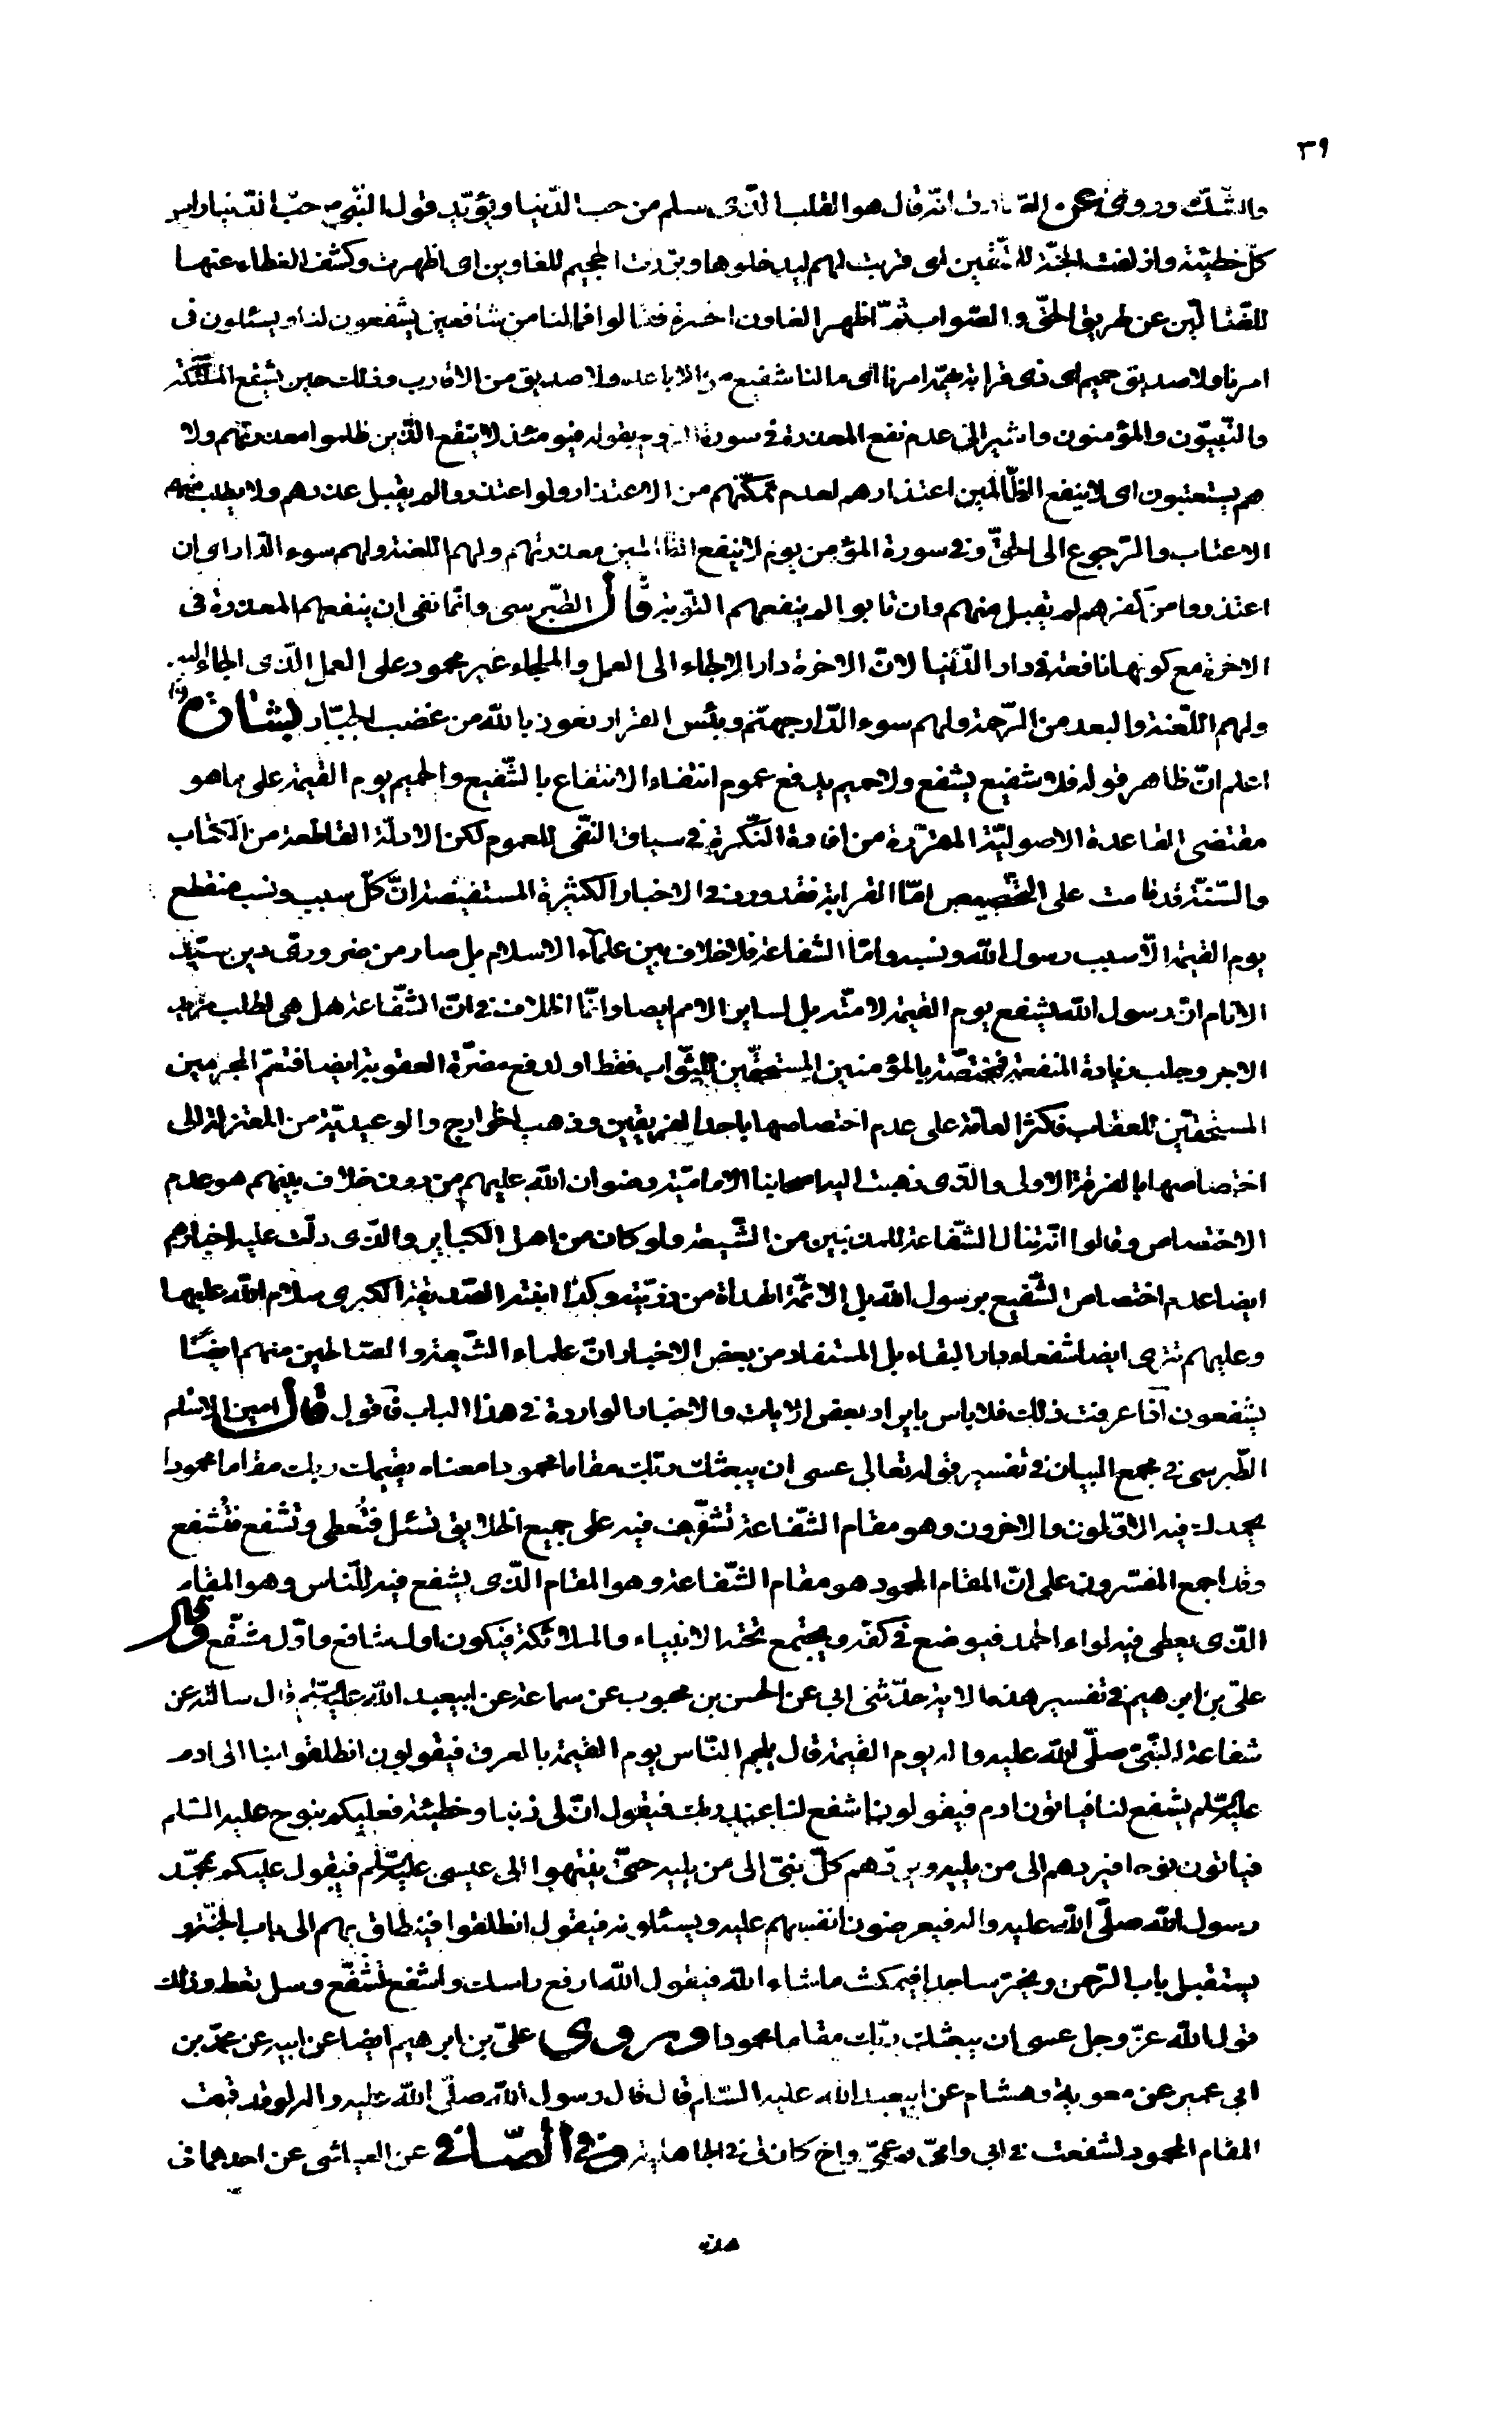 ٣٩
والشّك وروى عن الصّادق انّه قال هو القلب الّذى سلم من حب الدّنيا ويؤيّد قول النّبىّ ص حبّ الدّنيا راس
كلّ خطيئة وازلفت الجنّة للمتّقين اى قربت لهم ليدخلوها وبرّزت الجحيم للغاوين اى اظهرت وكشف الغطاء عنها
للضّالّين عن طريق الحقّ والصّواب ثمّ اظهر الغاون الحسرة فقالوا فمالنا من شافعين يشفعون لنا ويسئلون فى
امرنا ولا صديق حميم اى ذى قرابة يهمّه امرنا اى مالنا شفيع من الاباعد ولا صديق من الاقارب وذلك حين يشفع الملائكة
والنّبيّون والمؤمنون واشير الى عدم نفع المعذرة فى سورة الروم بقوله فيومئذ لا ينفع الّذين ظلموا معذرتهم ولا
هم يستعتبون اى لا ينفع الظّالمين اعتذارهم لعدم تمكّنهم من الاعتذار ولو اعتذروا لم يقبل عذرهم ولا يطلب منهم
الاعتاب والرّجوع الى الحقّ وفى سورة المؤمن يوم لا ينفع الظّالمين معذرتهم ولهم اللعنة ولهم سوء الدّار اى ان
اعتذروا من كفرهم لم يقبل منهم وان تابوا لم ينفعهم التّوبة قال الطّبرسى وانّما نفى ان ينفعهم المعذرة فى
الاخرة مع كونها نافعة فى دار الدّنيا لانّ الاخرة دار الالجاء الى العمل والملجاء غير محمود على العمل الّذى الجاء اليه
ولهم اللّعنة والبعد من الرّحمة ولهم سوء الدّار جهنّم وبئس القرار نعوذ بالله من غضب الجبّار بشارة
اعلم انّ ظاهر قوله فلا شفيع يشفع ولا حميم يدفع عموم انتفاء الانتفاع بالشّفيع والحميم يوم القيمة على ما هو
مقتضى القاعدة الاصوليّة المقرّرة من افادة النّكرة فى سياق النّفى للعموم لكن الادلّة القاطعة من الكتاب
والسّنّة قد قامت على التّخصيص امّا القرابة فقد ورد فى الاخبار الكثيرة المستفيضة انّ كلّ سبب ونسب منقطع
يوم القيمة الّا سبب رسول الله ونسبه وامّا الشّفاعة فلا خلاف بين علماء الاسلام بل صار من ضرورى دين سيّد
الانام انّ رسول الله يشفع يوم القيمة لامّته بل لساير الامم ايضا وانّما الخلاف فى انّ الشّفاعة هل هى لطلب مزيد
الاجر وجلب زيادة المنفعة فمختصّة بالمؤمنين المستحقّين للثّواب فقط او لدفع مضرّة العقوبة ايضا فتعمّ المجرمين
المستحقّين للعقاب فكثر العامّة على عدم اختصاصها باحد الفريقين وذهب الخوارج والوعيديّة من المعتزلة الى
اختصاصها بالفرقة الاولى والّذى ذهبت اليه اصحابنا الاماميّة رضوان الله عليهم من دون خلاف بينهم هو عدم
الاختصاص وقالوا انّه تنال الشّفاعة للمذنبين من الشّيعة ولو كان من اهل الكباير والّذى دلّت عليه اخبارهم
ايضا عدم اختصاص الشّفيع برسول الله بل الائمّة الهداة من ذرّيّته وكذا ابنته الصّديقة الكبرى سلام الله عليها
وعليهم تترى ايضا شفعاء دار البقاء بل المستفاد من بعض الاخبار انّ علماء الشّيعة والصّالحين منهم ايضًا
يشفعون اذا عرفت ذلك فلا باس بايراد بعض الايات والاخبار الواردة فى هذا الباب فاقول قال امين الاسلم
الطّبرسى فى مجمع البيان فى تفسير قوله تعالى عسى ان يبعثك ربّك مقاما محمودا معناه يقيمك ربك مقاما محمودا
يحمدك فيه الاوّلون والاخرون وهو مقام الشّفاعة تشرّف فيه على جميع الخلايق تسئل فتُعطى وتشفع فتُشفّع
وقد اجمع المفسّرون على انّ المقام المحمود هو مقام الشّفاعة وهو المقام الّذى يشفع فيه للّناس وهو المقام
الّذى يعطى فيه لواء الحمد فيوضع فى كفّه ويجتمع تحته الانبياء والملائكة فيكون اول شافع واوّل مشفّع وقال
علىّ بن ابرهيم فى تفسير هذه الاية حدّثنى ابى عن الحسن بن محبوب عن سماعة عن ابيعبد الله عليه السّلم قال سالته عن
شفاعة النّبىّ صلّى الله عليه واله يوم القيمة قال يلجم النّاس يوم القيمة بالعرق فيقولون انطلقوا بنا الى ادم
عليه السّلم يشفع لنا فياتون ادم فيقولون اشفع لنا عند ربك فيقول انّ لى ذنبا وخطيئة فعليكم بنوح عليه السّلم
فياتون نوحا فيردهم الى من يليه ويردّهم كلّ نبىّ الى من يليه حتّى ينتهوا الى عيسى عليه السّلم فيقول عليكم بمحمّد
رسول الله صلّى الله عليه واله فيعرضون انفسهم عليه ويسئلونه فيقول انطلقوا فينطلق بهم الى باب الجنّة و
يستقبل باب الرّحمن ويخرّ ساجدا فيمكث ما شاء الله فيقول الله ارفع راسك واشفع تشفّع وسل تعط وذلك
قول الله عزّ وجل عسى ان يبعثك ربّك مقاما محمودا وروى علىّ بن ابرهيم ايضا عن ابيه عن محمّد بن
ابى عمير عن معوية وهشام عن ابيعبد الله عليه السّلم قال قال رسول الله صلّى الله عليه واله لو قد قمت
المقام المحمود لشفعت فى ابى وامّى وعمّى واخ كان لى فى الجاهليّة وفى الصّافى عن العياشى عن احدهما فى